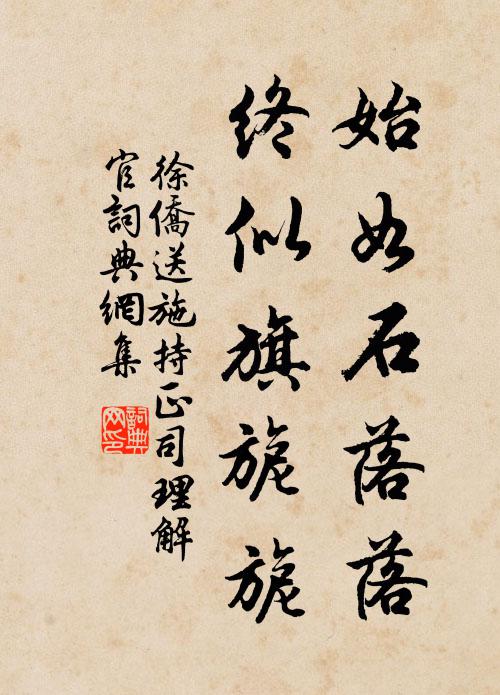 始如石落落
終似旗旎旎
徐僑送施持正司理解
官詞典網集
詞典網印